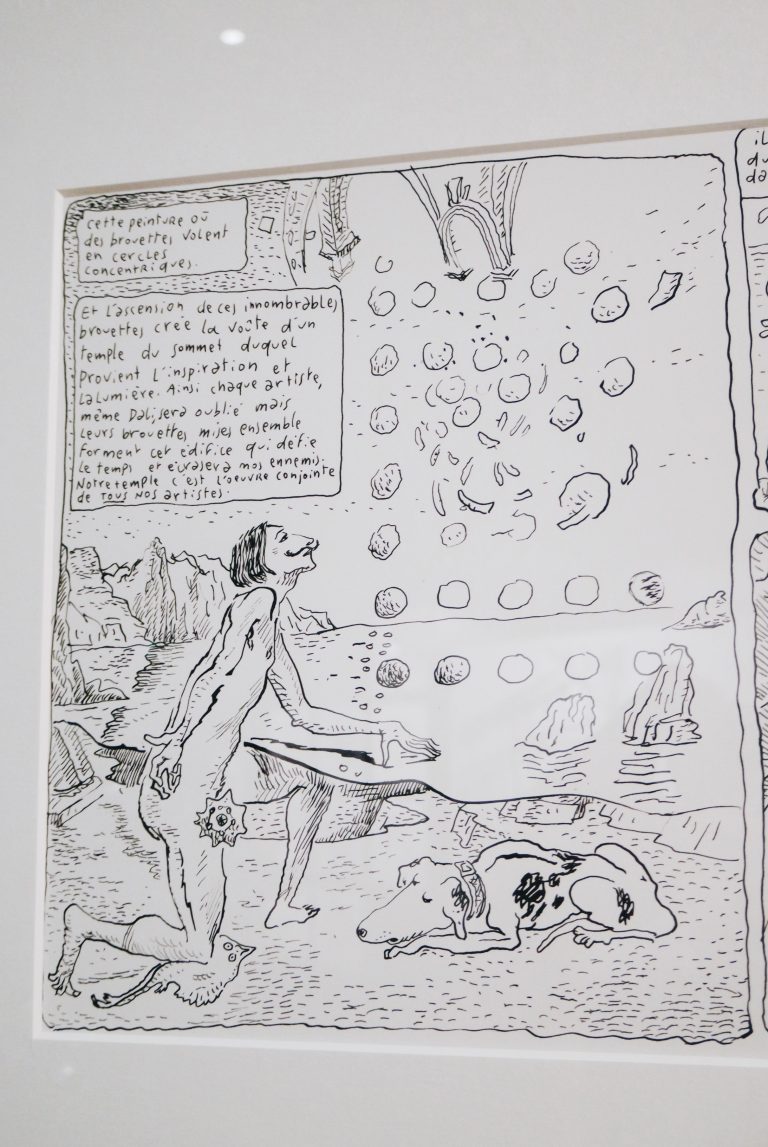 cette peinture où
des brouettes volent
en cercles
concentriques.
Et l'ascension de ces innombrables
brouettes crée la voûte d'un
temple du sommet duquel
provient l'inspiration et
la lumière. Ainsi chaque artiste,
même Dali, sera oublié mais
leurs brouettes mises ensemble
forment cet édifice qui défie
le temps et écrasera nos ennemis.
Notre temple c'est l'oeuvre conjointe
de TOUS NOS artistes.
iL
du
da